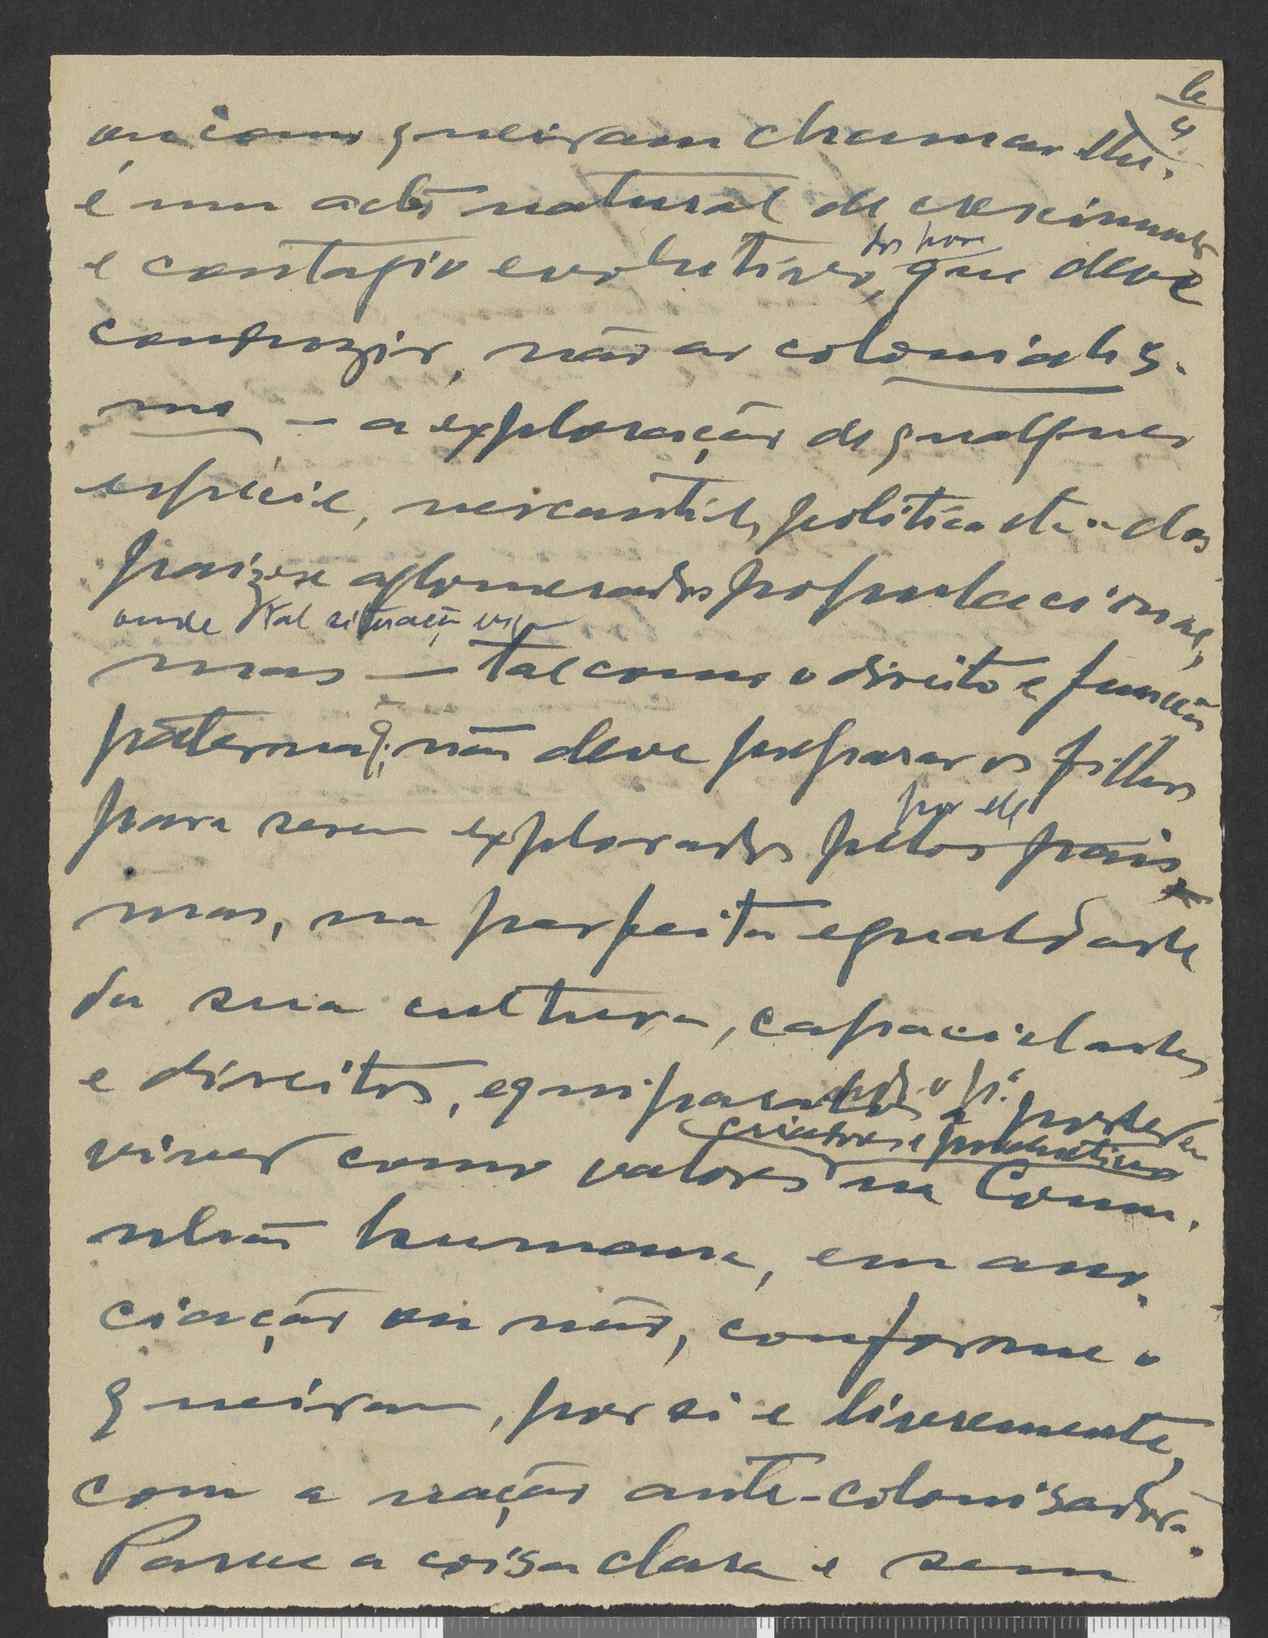 4
ou como queiram chamar-lhe.
é um acto natural de crescimento
dos povos
e contagio evolutivo, que deve
conduzir, não ao colonialis-
mo — a exploração de qualquer
especie, mercantil, politica etc — dos
paizes e aglomerados populacionaes,
onde tal situação
mas — tal como o direito e função
paterna q. não deve preparar os filhos
por ele
para serem explorados pelos pais
mas, na perfeita egualdade
da sua cultura, capacidades
e direitos, equiparados a poderem
creadores e productivos
viver como valores na Comu-
nhão humana, em asso-
ciação ou não, conforme o
queiram, por si e livremente,
com a nação ante-colonisadora.
Parece a coisa clara e sem